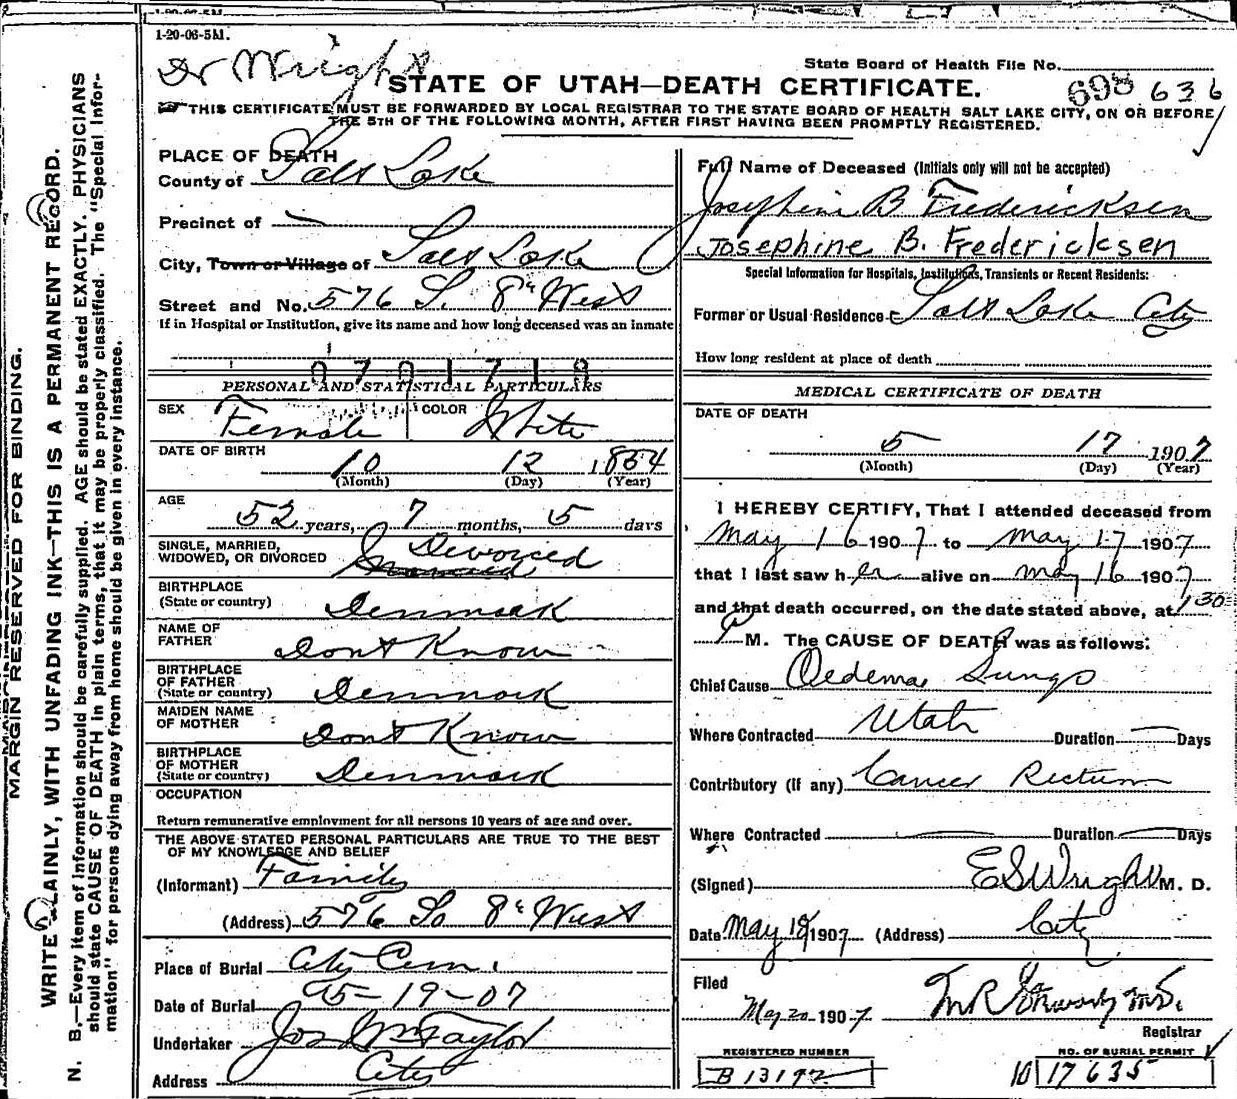 1-20-06-5M.
Dr Wright
State Board of Health File No.
STATE OF UTAH—DEATH CERTIFICATE.
698 636
THIS CERTIFICATE MUST BE FORWARDED BY LOCAL REGISTRAR TO THE STATE BOARD OF HEALTH SALT LAKE CITY, ON OR BEFORE
THE 5TH OF THE FOLLOWING MONTH, AFTER FIRST HAVING BEEN PROMPTLY REGISTERED.
MARGIN RESERVED FOR BINDING.
WRITE PLAINLY, WITH UNFADING INK—THIS IS A PERMANENT RECORD.
N. B.—Every item of information should be carefully supplied. AGE should be stated EXACTLY. PHYSICIANS
should state CAUSE OF DEATH in plain terms, that it may be properly classified. The "Special Infor-
mation" for persons dying away from home should be given in every instance.
PLACE OF DEATH
County of Salt Lake
Precinct of —
City, Town or Village of Salt Lake
Street and No. 576 S. 8th West
If in Hospital or Institution, give its name and how long deceased was an inmate
PERSONAL AND STATISTICAL PARTICULARS
SEX Female COLOR White
DATE OF BIRTH
10 12 1854
(Month) (Day) (Year)
AGE
52 years, 7 months, 5 days
SINGLE, MARRIED,
WIDOWED, OR DIVORCED Divorced
BIRTHPLACE
(State or country) Denmark
NAME OF
FATHER Dont Know
BIRTHPLACE
OF FATHER
(State or country) Denmark
MAIDEN NAME
OF MOTHER Dont Know
BIRTHPLACE
OF MOTHER
(State or country) Denmark
OCCUPATION
Return remunerative employment for all persons 10 years of age and over.
THE ABOVE STATED PERSONAL PARTICULARS ARE TRUE TO THE BEST
OF MY KNOWLEDGE AND BELIEF
(Informant) Family
(Address) 576 So 8th West
Place of Burial City Cem.
Date of Burial 5-19-07
Undertaker Jos Wm Taylor
Address City
Full Name of Deceased (Initials only will not be accepted)
Josephine B Fredericksen
Josephine B. Fredericksen
Special Information for Hospitals, Institutions, Transients or Recent Residents:
Former or Usual Residence Salt Lake City
How long resident at place of death
MEDICAL CERTIFICATE OF DEATH
DATE OF DEATH
5 17 1907
(Month) (Day) (Year)
I HEREBY CERTIFY, That I attended deceased from
May 16 1907 to May 17 1907
that I last saw her alive on May 16 1907
and that death occurred, on the date stated above, at 1 30
M. The CAUSE OF DEATH was as follows:
Chief Cause Oedema Lungs
Where Contracted Utah Duration — Days
Contributory (if any) Cancer Rectum
Where Contracted — Duration — Days
(Signed) E S Wright M. D.
Date May 18 1907 (Address) City
Filed
May 20 1907
Registrar
REGISTERED NUMBER
B 13192
NO. OF BURIAL PERMIT
10 17635